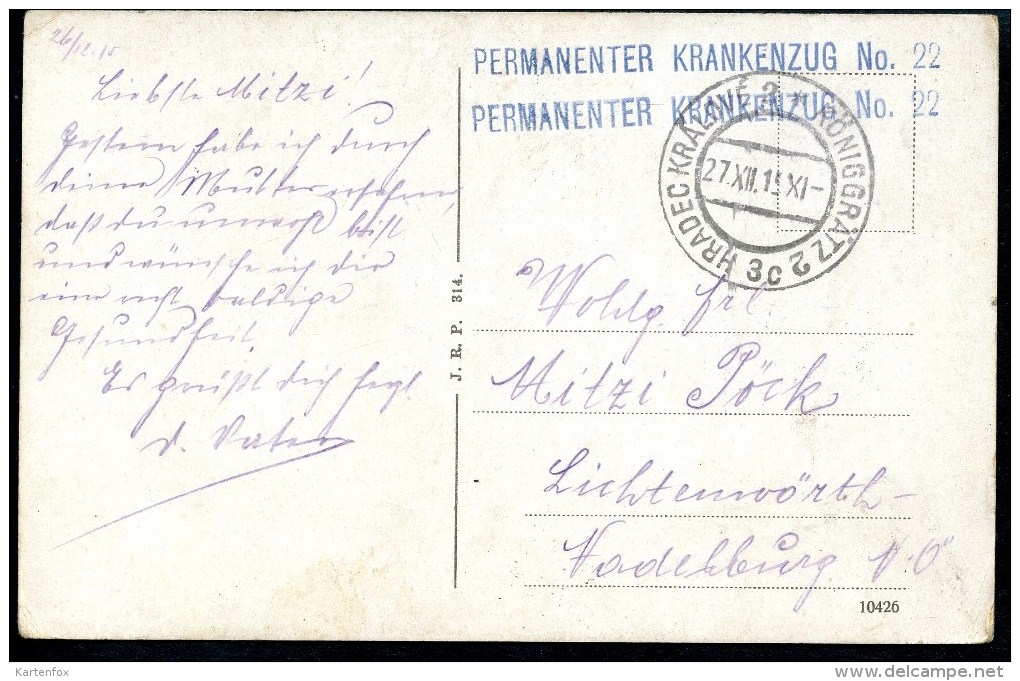 26/12.15
Liebste Mitzi!
Gestern habe ich durch
deine Mutter erfahren,
daß du unwohl bist
und wünsche ich dir
eine recht baldige
Gesundheit.
Es grüßt dich
d. Vater
J. R. P. 314.
PERMANENTER KRANKENZUG No. 22
PERMANENTER KRANKENZUG No. 22
HRADEC KRÁLOVÉ 2 * KÖNIGGRÄTZ 2 3c
27.XII.15 XI-
Wohlg. Frl.
Mitzi Pöck
Lichtenwörth-
Nadelburg N.Ö
10426
Kartenfox
delcampe.net